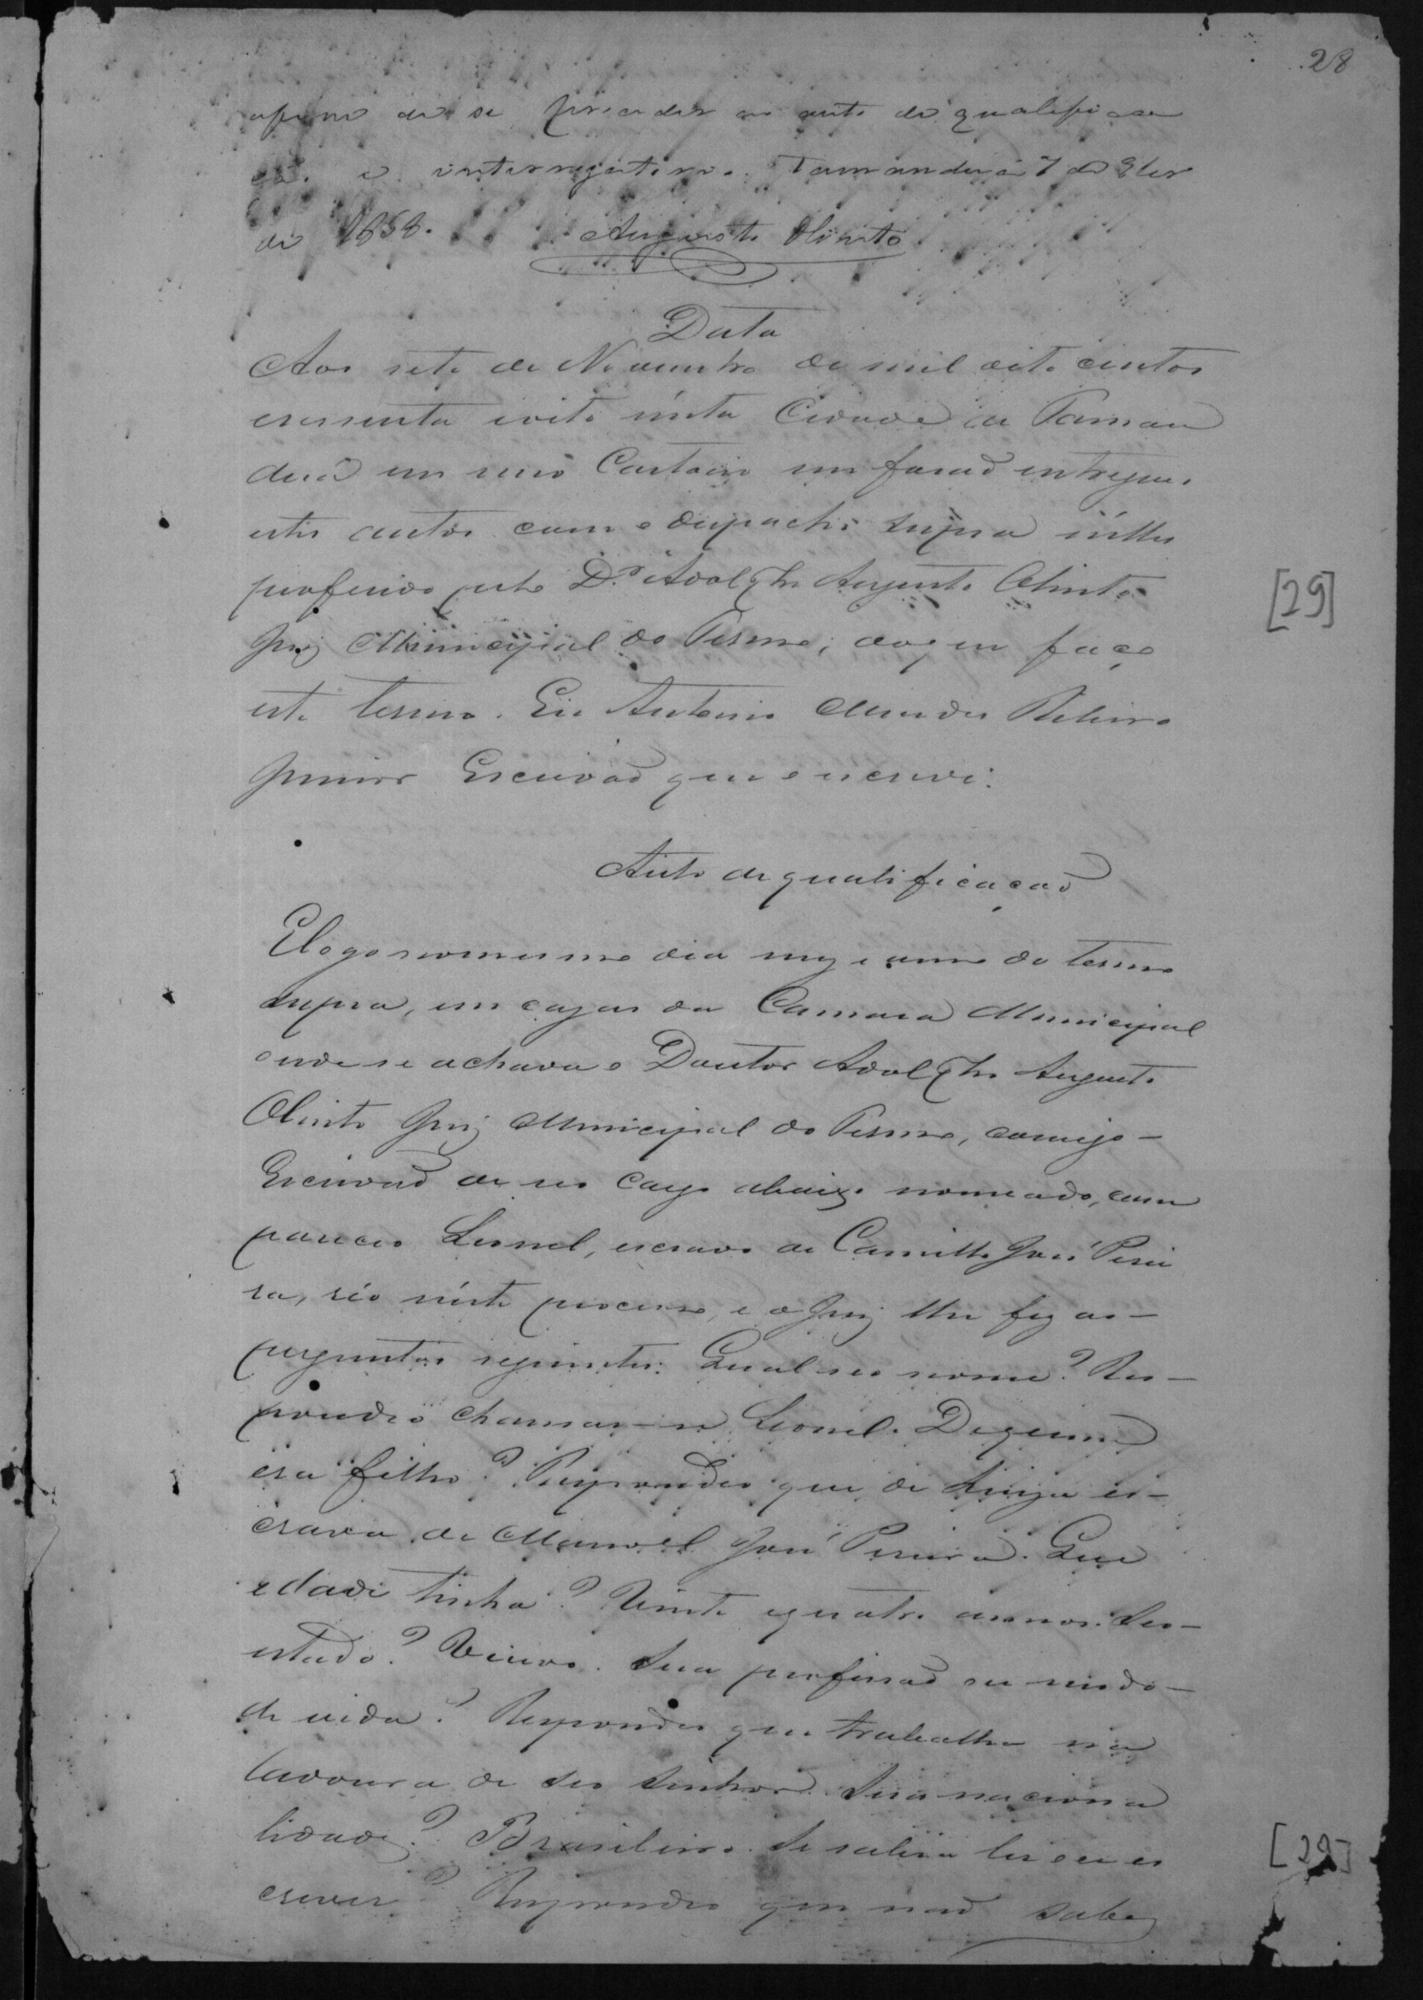 28
afim de se proceder ao auto de qualifica
ção e interrogatorio. Tamanduá 7 de 9bro
de 1868. Augusto Olinto
Data
Aos sete de Novembro de mil oito centos
esessenta eoito nésta Cidade de Taman
duá em meo Cartorio me forão entregues
estes autos com o despacho supra nélles
proferido pelo Dr. Adolpho Augusto Olinto
Juiz Municipal do Termo; do que faço
este termo. Eu Antonio Mendes Ribeiro
Junior Escrivão que o escrevi.
Auto de qualificação
E logo no mesmo dia mez e anno do termo
supra, em cazas da Camara Municipal
onde se achava o Doutor Adolpho Augusto
Olinto Juiz Municipal do Termo, comigo
Escrivão de seo cargo abaixo nomeado, com
pareceo Leonel, escravo de Camillo José Perei
ra, réo néste processo, e o Juiz lhe fez as
perguntas seguintes: Qual seo nome? Res-
pondeo chamar-se Leonel. De quem
era filho? Respondeo que de es-
crava de Manoel José Pereira. Que
edade tinha? Vinte e quatro annos. Seo
estado? Viuvo. Sua profissão ou modo
de vida? Respondeo que trabalha na
lavoura de seo senhor. Sua naciona
lidade? Brasileiro. Se sabia ler ou es
crever? Respondeo que não sabe
[29]
[29]